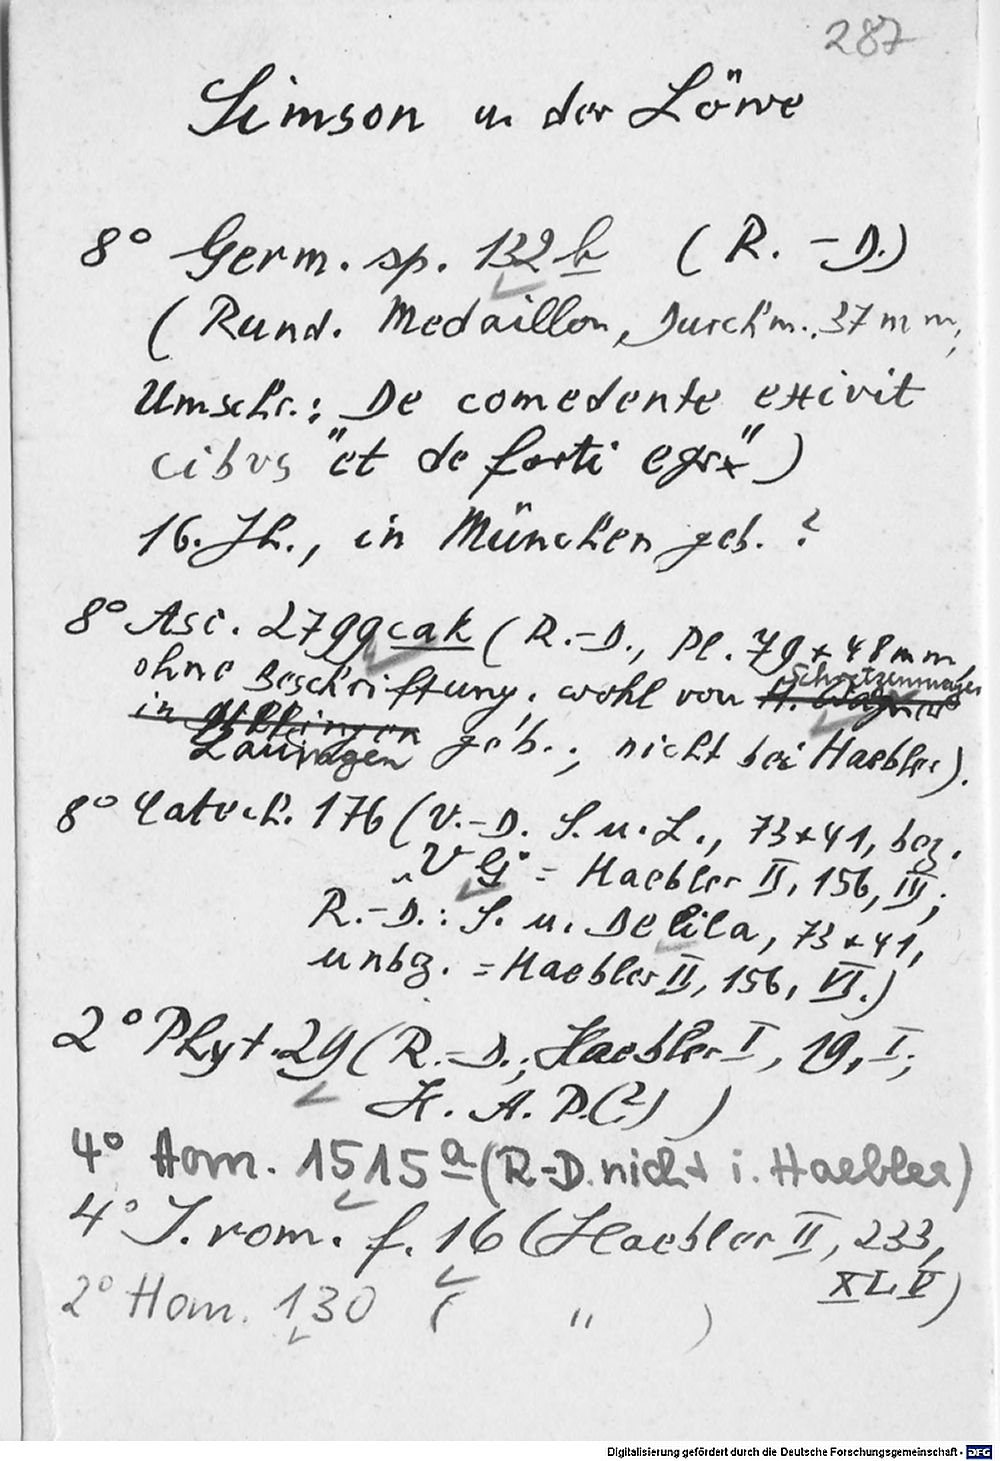 287
Simson u. der Löwe
8° Germ. sp. 132 b (R.-D.)
(Rund. Medaillon, Durchm. 37 mm,
Umschr.: De comedente exivit
cibvs "et de forti egrx")
16. Jh., in München geb. ?
8° Asc. 2799 cak (R.-D., Pl. 79 x 48 mm
ohne Beschriftung, wohl von H. Wagner Schretzenmayer
in
Lauingen geb.; nicht bei Haebler).
8° Catech. 176 (V.-D. S. u. L., 73 x 41, bez.
"V G" = Haebler II, 156, III;
R.-D.: S. u. Delila, 73 x 41,
unbz. = Haebler II, 156, VI.)
2° Phyt. 29 (R.-D.; Haebler I, 19, I;
H. A. P. (?) )
4° Hom. 1515 a (R-D. nicht i. Haebler)
4° J. rom. f. 16 (Haebler II, 233,
XLV)
2° Hom. 130 ( " )
Digitalisierung gefördert durch die Deutsche Forschungsgemeinschaft - DFG